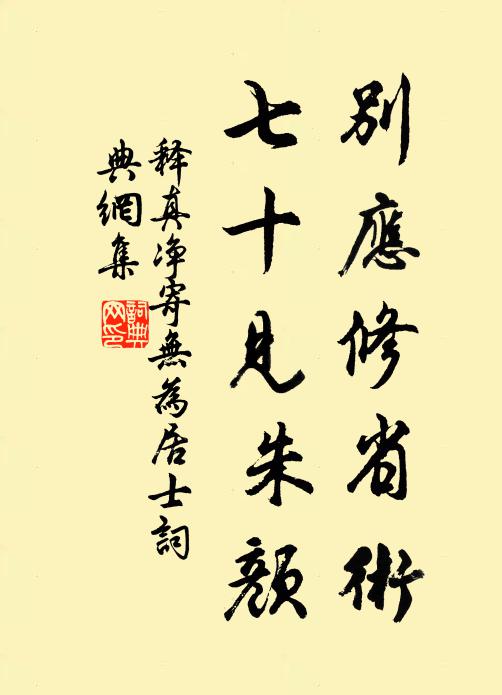 別應修省術
七十見朱顏
释真净寄無為居士詞
典網集
詞典網印